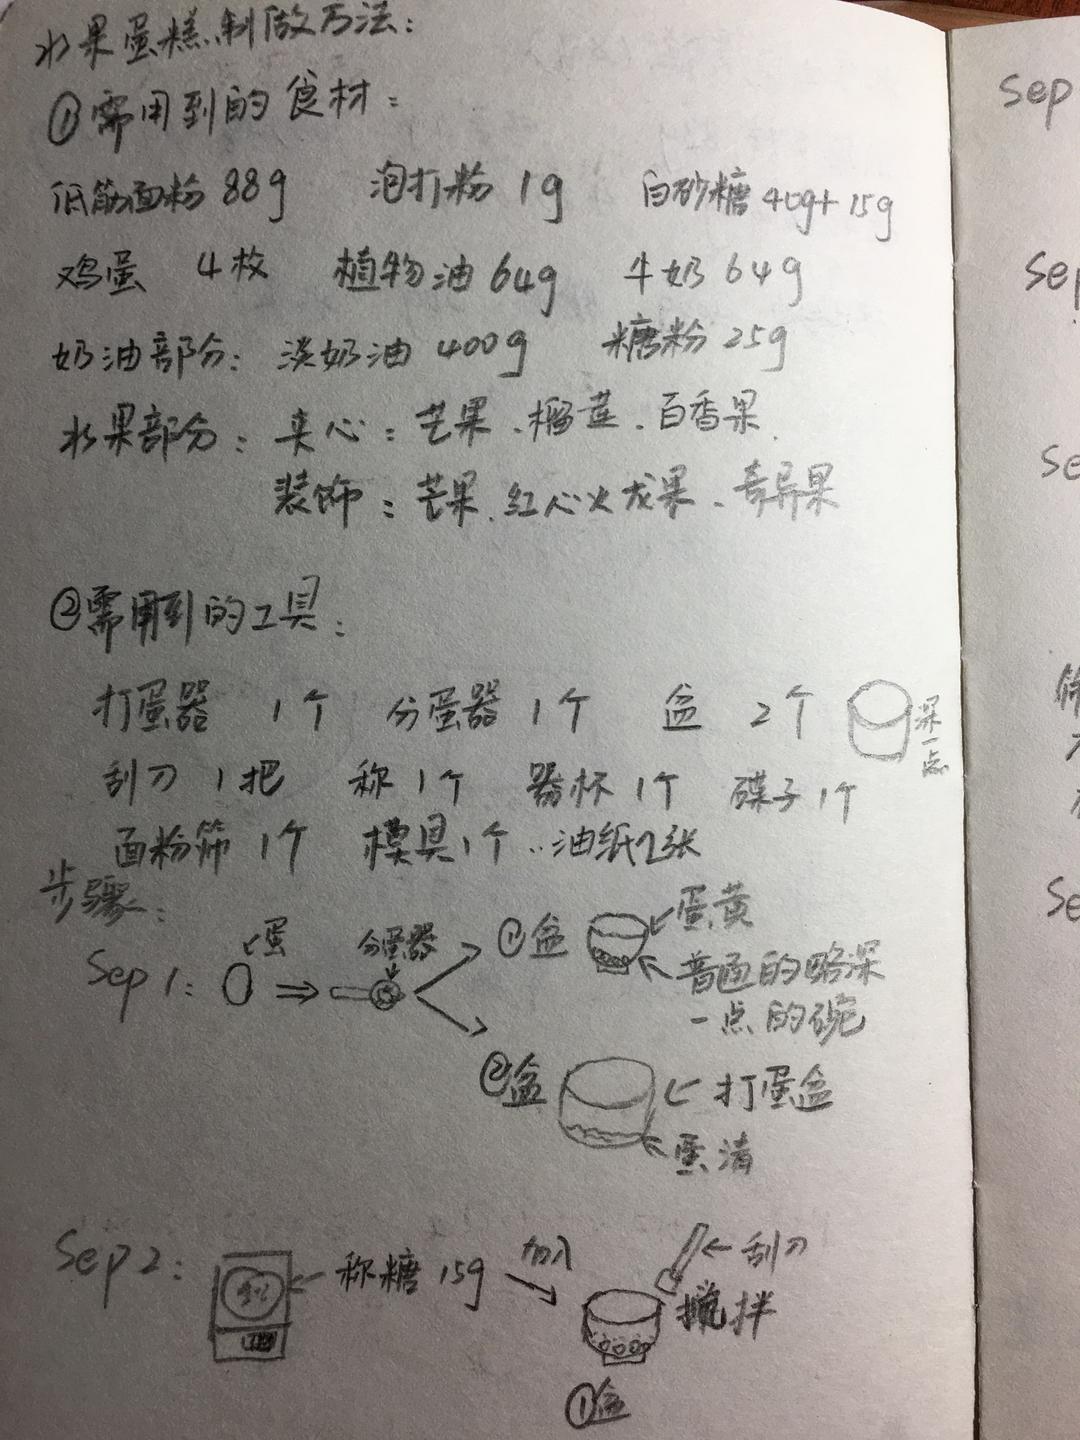 水果蛋糕制做方法：
①需用到的食材：
低筋面粉 88g 泡打粉 1g 白砂糖 40g+15g
鸡蛋 4枚 植物油 64g 牛奶 64g
奶油部分：淡奶油 400g 糖粉 25g
水果部分：夹心：芒果、榴莲、百香果
装饰：芒果、红心火龙果、奇异果
②需用到的工具：
打蛋器 1个 分蛋器 1个 盆 2个 深一点
刮刀 1把 称 1个 器杯 1个 碟子 1个
面粉筛 1个 模具 1个 油纸2张
步骤：
Sep 1： 蛋 分蛋器 ①盆 蛋黄
普通的略深
一点的碗
②盆 打蛋盆
蛋清
Sep 2： 称糖 15g 加入 刮刀
搅拌
①盆
Sep
Sep
Se
筛
Se